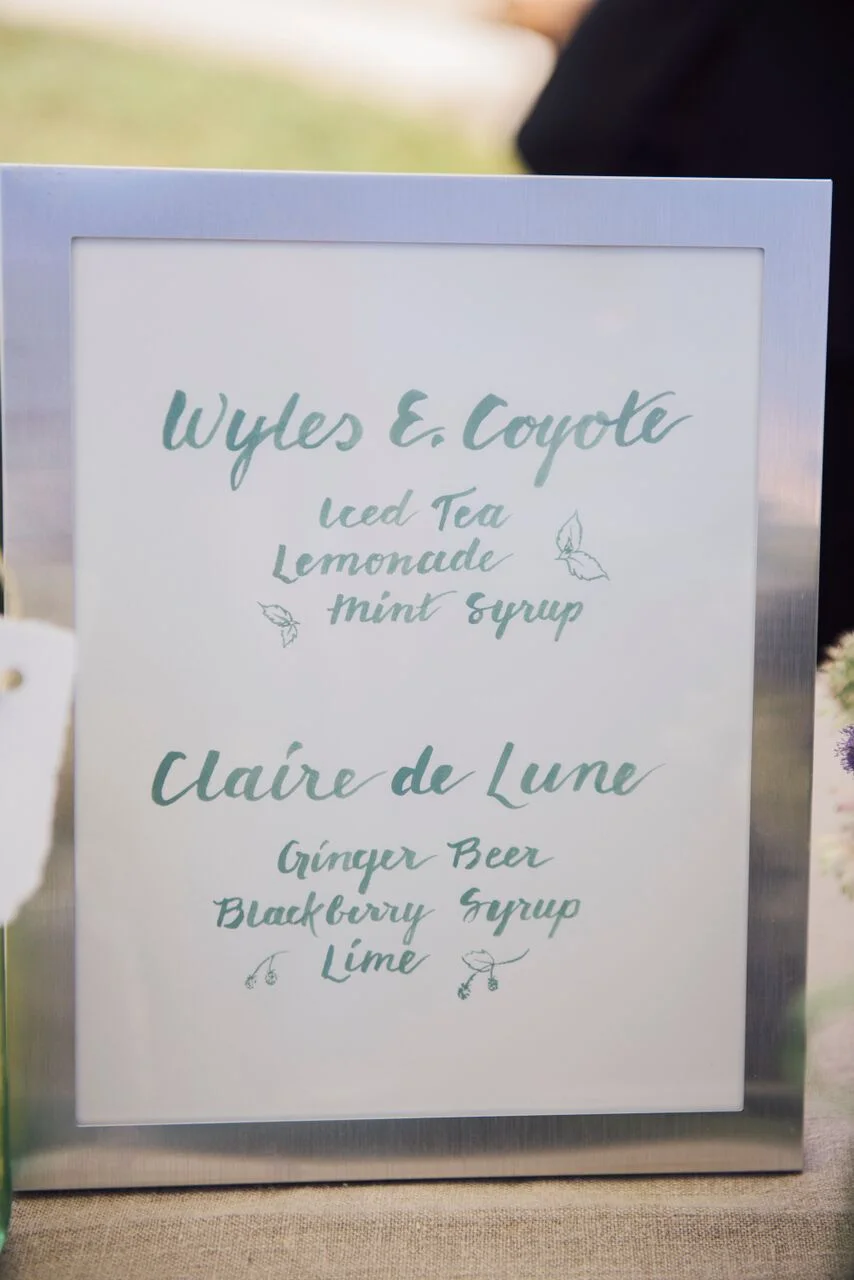 Wyles E. Coyote
Iced Tea
Lemonade
Mint Syrup
Claire de Lune
Ginger Beer
Blackberry Syrup
Lime